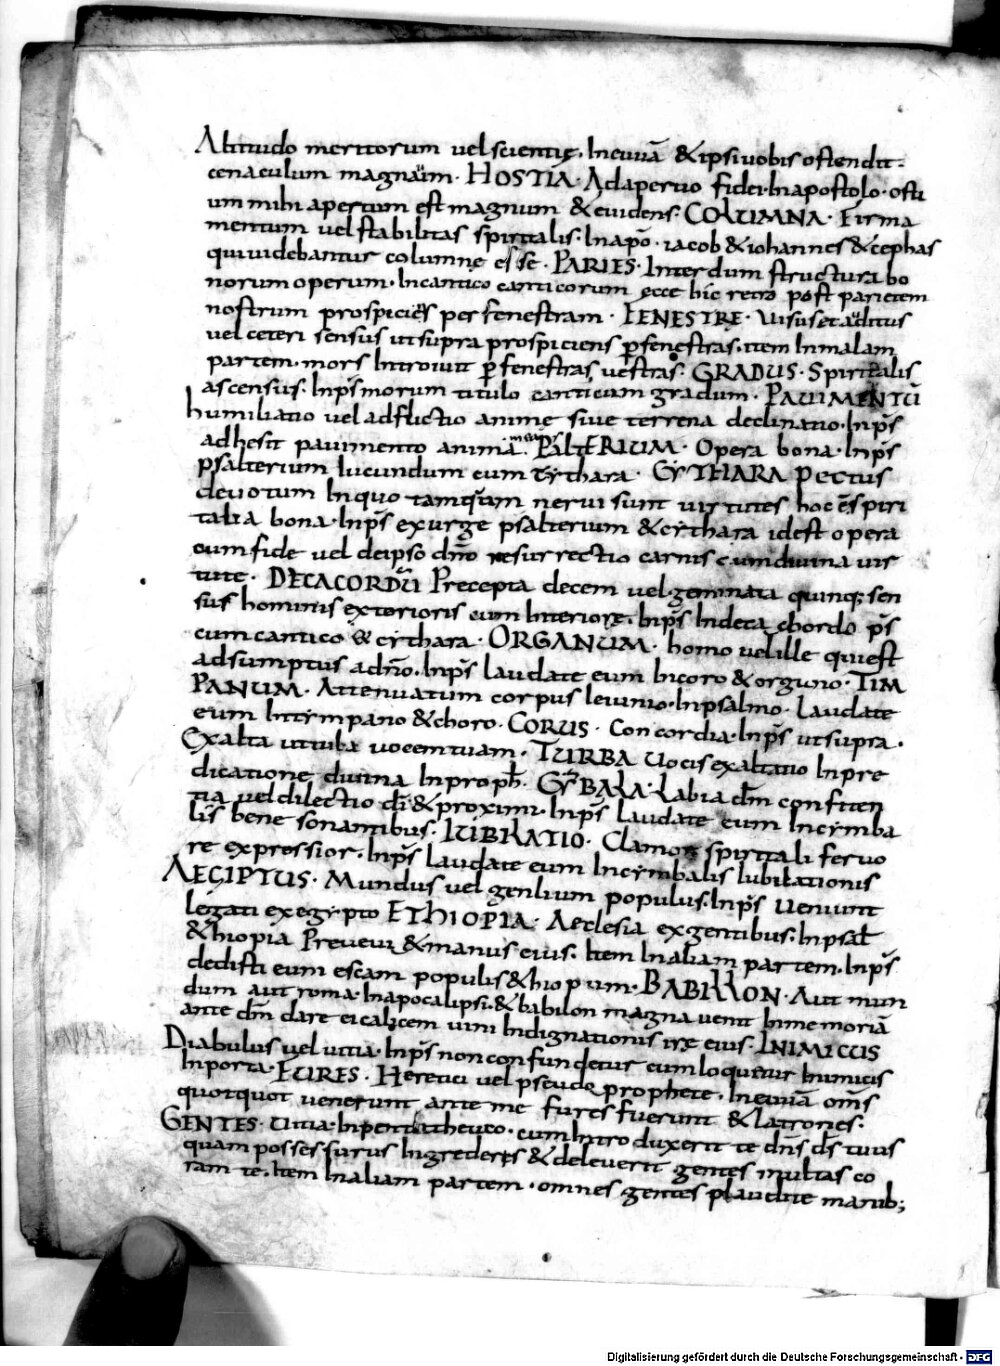 Altitudo meritorum vel scientię. In euuā & ipsi uobis ostendit
cenaculum magnum. HOSTIA. Adapertio fidei. In apostolo. osti
um mihi apertum est magnum & euidens. COLUMNA. Firma
mentum vel stabilitas spiritalis. In apo. iacob & iohannes & cephas
qui uidebantur columnę esse. PARIES. Interdum structura bo
norum operum. In cantico canticorum ecce hic retro post parietem
nostrum prospiciens per fenestram. FENESTRE. Uisus et auditus
vel ceteri sensus ut supra prospiciens p fenestras. item In malam
partem. mors Introiuit p fenestras uestras. GRADUS. Spiritalis
ascensus. In ps morum titulo canticum gradum. PAUIMENTŪ
humiliatio vel adflictio animę siue terrena declinatio. In ps
adhesit pauimento anima mea. PSALTERIUM. Opera bona. In ps
psalterium iucundum cum cythara. CYTHARA Pectus
deuotum In quo tamquam nerui sunt uirtutes hoc ē spiri
talia bona. In ps exurge psalterium & cythara id est opera
cum fide vel de ipso dnō resurrectio carnis cum diuina uir
tute. DECACORDŪ Precepta decem vel geminata quinq; sen
sus hominis exterioris cum Interiore. In ps In deca chordo ps
cum cantico & cythara. ORGANUM. homo vel ille qui est
adsumptus a dnō. In ps laudate eum In coro & organo. TIM
PANUM. Attenuatum corpus ieiunio. In psalmo. Laudate
eum In tympano & choro. CORUS. Concordia. In ps ut supra.
Exalta ut tuba uocem tuam. TURBA Uocis exaltatio In pre
dicatione diuina In proph. CYBALA. Labia dm confiten
tia vel dilectio di & proximi. In ps Laudate eum In cymba
lis bene sonantibus. IUBILATIO. Clamor spiritali feruo
re expressior. In ps laudate eum In cymbalis Iubilationis
AEGIPTUS. Mundus vel gentium populus. In ps Ueniunt
legati ex egypto ETHIOPIA. Aeclesia ex gentibus. In psal
&hiopia Preueni & manus eius. Item In aliam partem. In ps
dedisti eum escam populis &hiopum. BABILLON. Aut mun
dum aut roma. In apocalipsi. & babilon magna uenit In memoriā
ante dm dare ei calicem uini Indignationis irę eius. INIMICUS
Diabulus vel uitia. In ps non confundetur cum loquetur Inimicis
In porta. FURES. Heretici vel pseudę prophete. In euuā oms
quotquot uenerunt ante me fures fuerunt & latrones.
GENTES. Uitia. In pentatheuco. cum Introduxerit te dns ds tuus
quam possessurus Ingrederes & deleuerit gentes multas co
ram te. Item In aliam partem. omnes gentes plaudite manib;
Digitalisierung gefördert durch die Deutsche Forschungsgemeinschaft - DFG